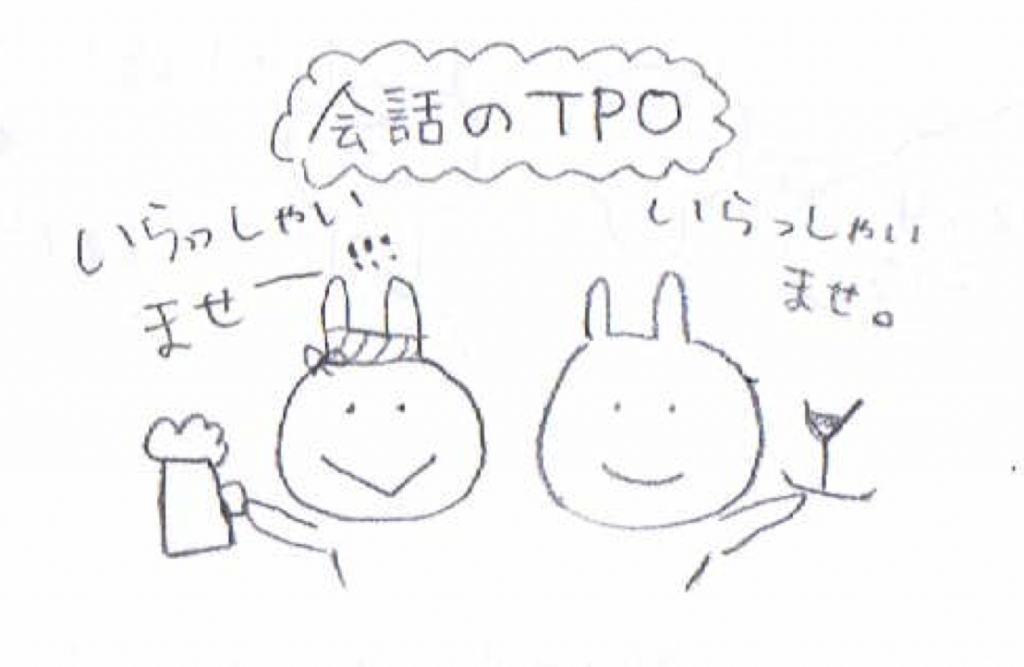 会話のTPO
いらっしゃい
ませー!!!
いらっしゃい
ませ。